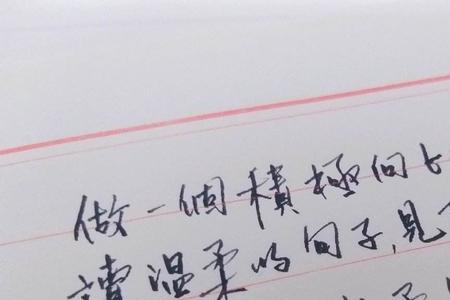 做一個積極向上
讀溫柔的句子,見